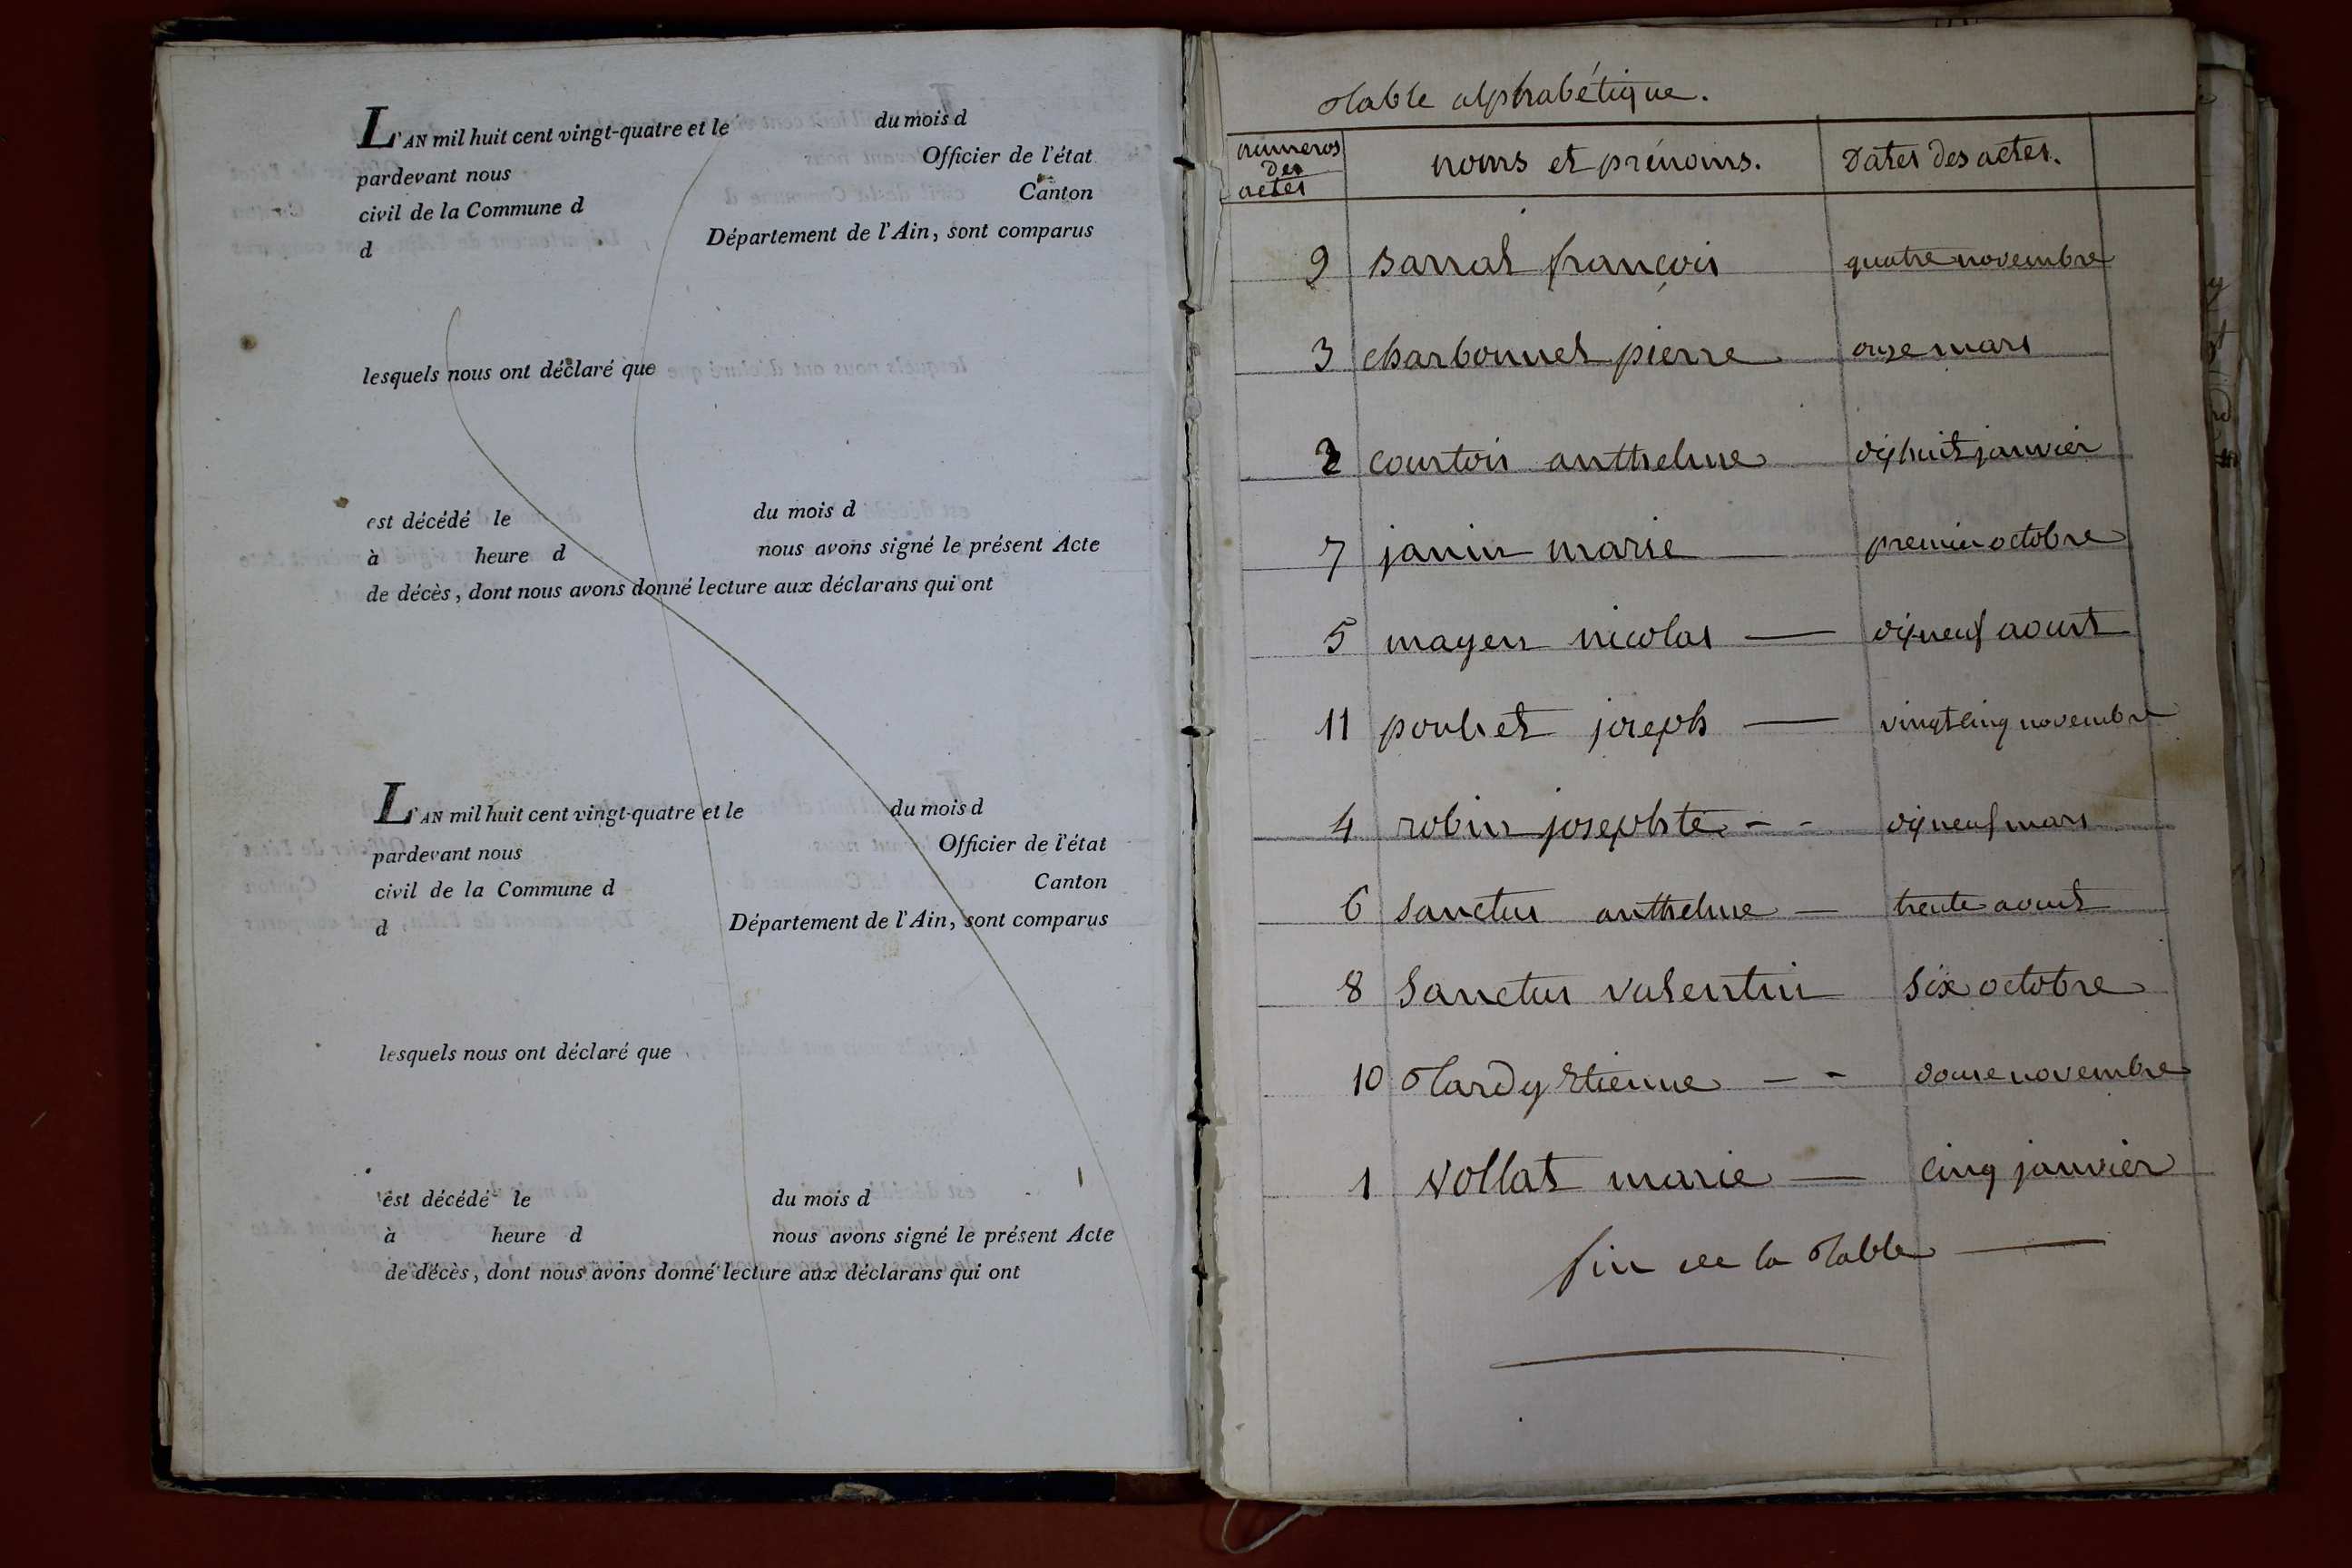 L'AN mil huit cent vingt-quatre et le du mois d
pardevant nous Officier de l'état
civil de la Commune d Canton
d Département de l'Ain, sont comparus
lesquels nous ont déclaré que
est décédé le du mois d
à heure d nous avons signé le présent Acte
de décès, dont nous avons donné lecture aux déclarans qui ont
L'AN mil huit cent vingt-quatre et le du mois d
pardevant nous Officier de l'état
civil de la Commune d Canton
d Département de l'Ain, sont comparus
lesquels nous ont déclaré que
est décédé le du mois d
à heure d nous avons signé le présent Acte
de décès, dont nous avons donné lecture aux déclarans qui ont
Table alphabétique.
numeros
des
actes
noms et prénoms.
Dates des actes.
9 Barral françois quatre novembre
3 charbonnet pierre onze mars
2 courtois anthelme dixhuit janvier
7 janin marie — premier octobre
5 mayen nicolas — dixneuf aoust
11 joseph — vingt cinq novembre
4 robin josephte - - dixneuf mars
6 Sanctus anthelme — trente aoust
8 Sanctus valentin six octobre
10 Tardy Etienne - - douze novembre
1 vollat marie — cinq janvier
fin de la Table —